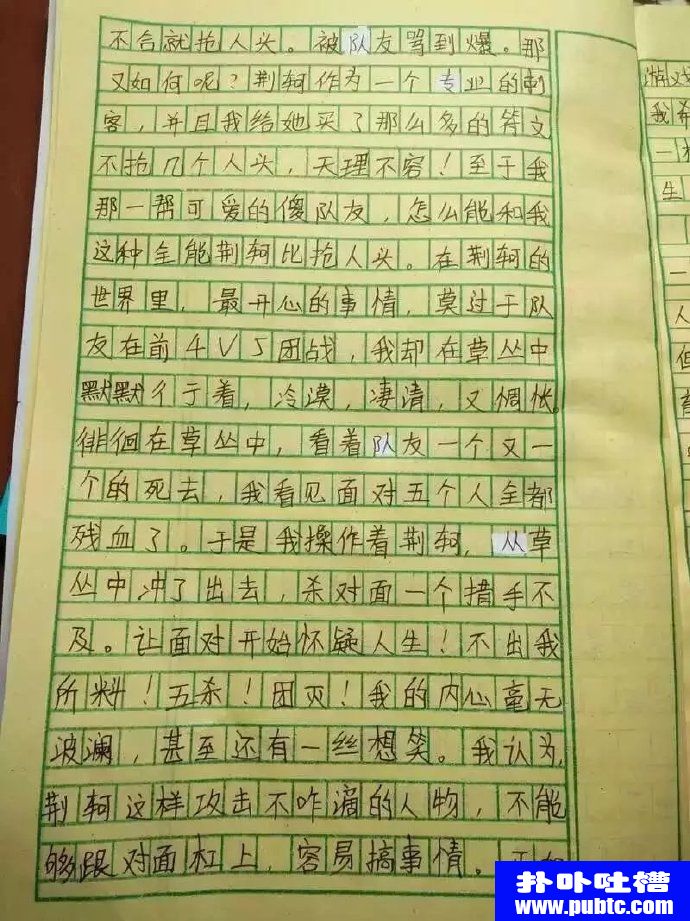 不合就抢人头。被队友骂到爆。那
又如何呢？荆轲作为一个专业的刺
客，并且我给她买了那么多的符文
不抢几个人头，天理不容！至于我
那一帮可爱的傻队友，怎么能和我
这种全能荆轲比抢人头。在荆轲的
世界里，最开心的事情，莫过于队
友在前4V5团战，我却在草丛中
默默亍着，冷漠，凄清，又惆怅
徘徊在草丛中，看着队友一个又一
个的死去，我看见面对五个人全都
残血了。于是我操作着荆轲，从草
丛中冲了出去，杀对面一个措手不
及。让面对开始怀疑人生！不出我
所料！五杀！团灭！我的内心毫无
波澜，甚至还有一丝想笑。我认为，
荆轲这样攻击不咋滴的人物，不能
够跟对面杠上，容易搞事情。
游戏
我希
一
生
一
人
但
扑卟吐槽
www.pubtc.com